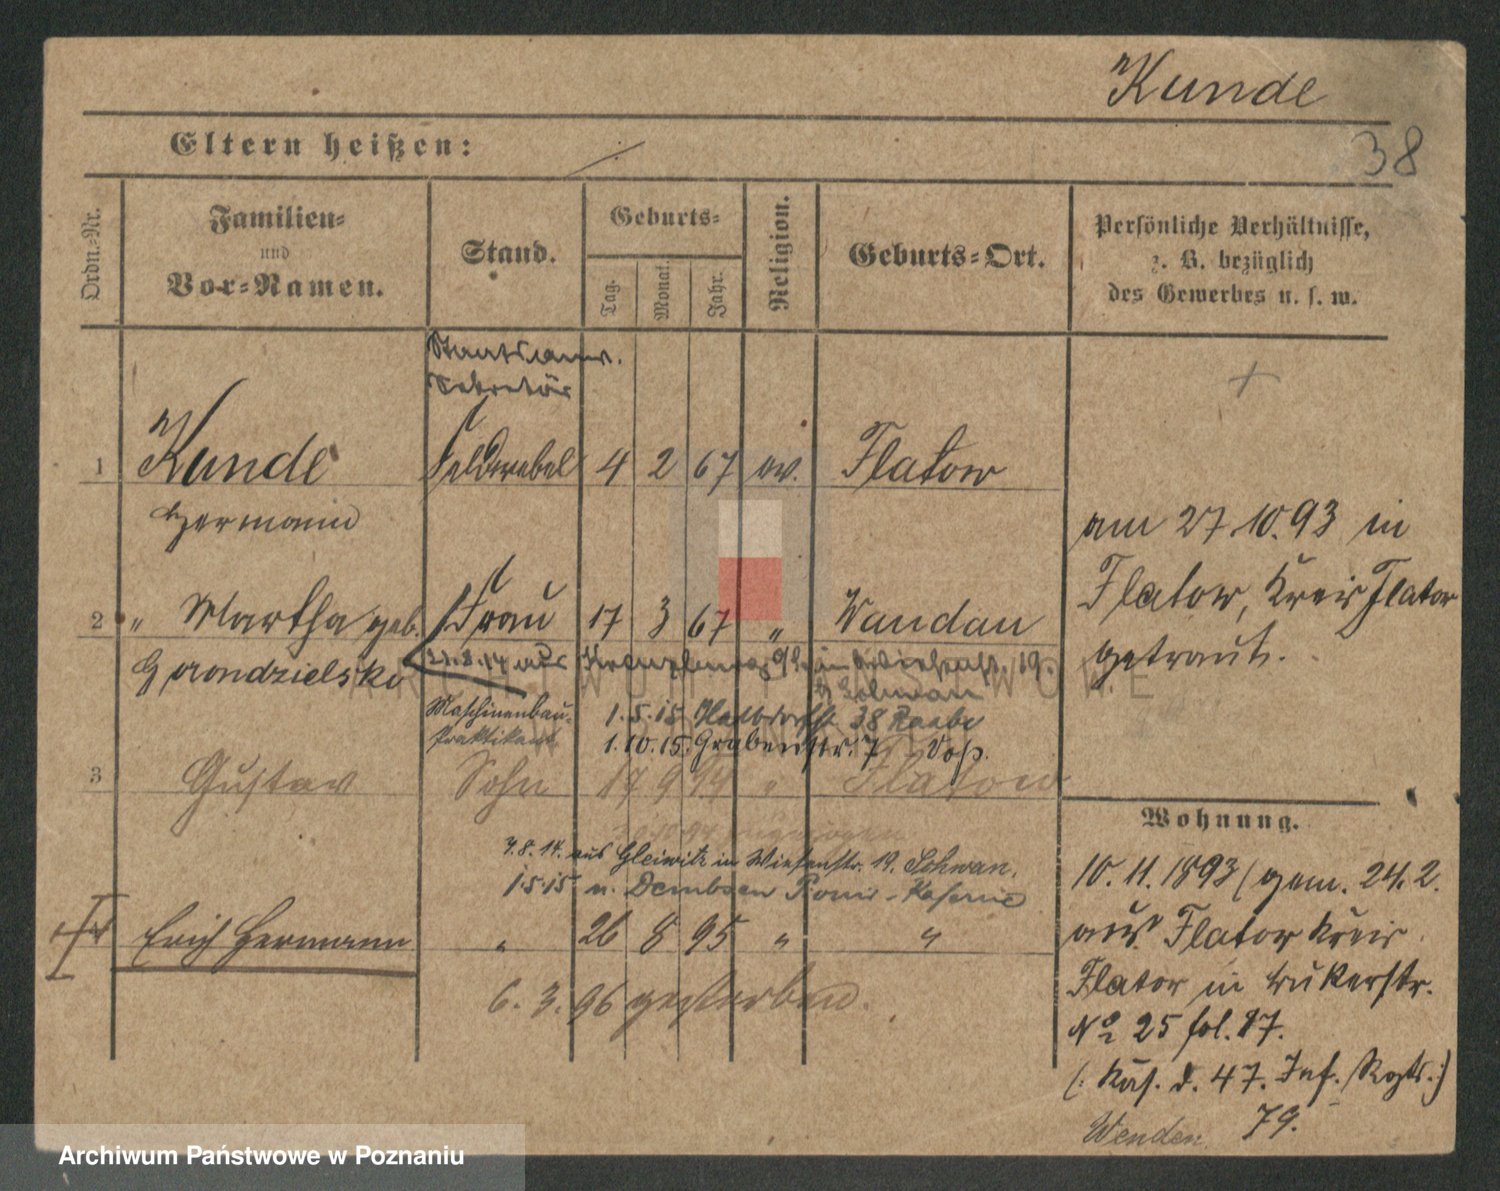 Kunde
38
Eltern heißen:
Ordn.-Nr.
Familien-
und
Vor-Namen.
Stand.
Geburts-
Tag.
Monat.
Jahr.
Religion.
Geburts-Ort.
Persönliche Verhältnisse,
z. B. bezüglich
des Gewerbes u. s. w.
Staatsanw.
Sekretär
1 Kunde Feldwebel 4 2 67 ev. Flatow
Hermann
am 27.10.93 in
Flatow, Kreis Flatow
getraut.
2 " Martha geb. Frau 17 3 67 " Wandau
Gorondzielski
21.8.14 aus in 19.
Schwan
Maschinenbau-
Praktikant
1.5.15 38 Raabe
1.10.15. Grabenstr. 7 Voß.
3 Gustav Sohn 17 9 94 " Flatow
zugezogen
7.8.14. aus Gleiwitz in Wiesenstr. 19. Schwan.
1.5.15 n. Dembsen Kaserne
Erich Hermann " 26 8 95 " "
6. 3. 96 gestorben.
Wohnung.
10. 11. 1893 (gem. 24. 2.
aus Flatow Kreis
Flatow in
No 25 fol. 87.
(: Kas. d. 47. Inf. Rgts. :)
Wenden 79.
ARCHIWUM PAŃSTWOWE
W POZNANIU
Archiwum Państwowe w Poznaniu